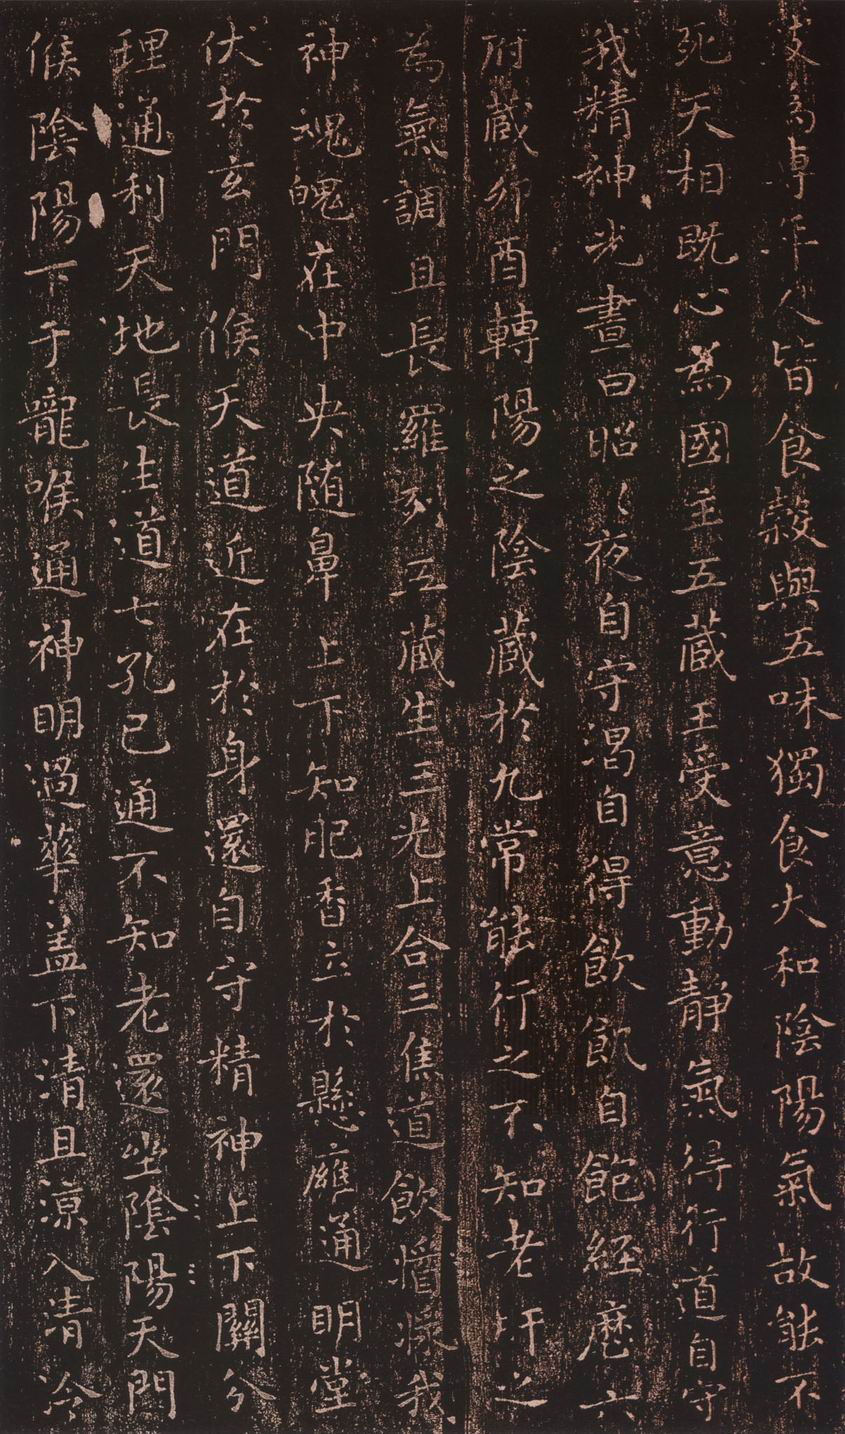 髮為專年人皆食穀與五味獨食大和陰陽氣故能不
死天相既心為國主五藏王受意動靜氣得行道自守
我精神光晝日昭〻夜自守渴自得飲飢自飽經歷六
府藏卯酉轉陽之陰藏於九常能行之不知老肝之
為氣調且長羅列五藏生三光上合三焦道飲醬漿我
神魂魄在中央随鼻上下知肥香立於懸廱通明堂
伏於玄門候天道近在於身還自守精神上下關分
理通利天地長生道七孔已通不知老還坐陰陽天門
候陰陽下于嚨喉通神明過華蓋下清且涼入清冷